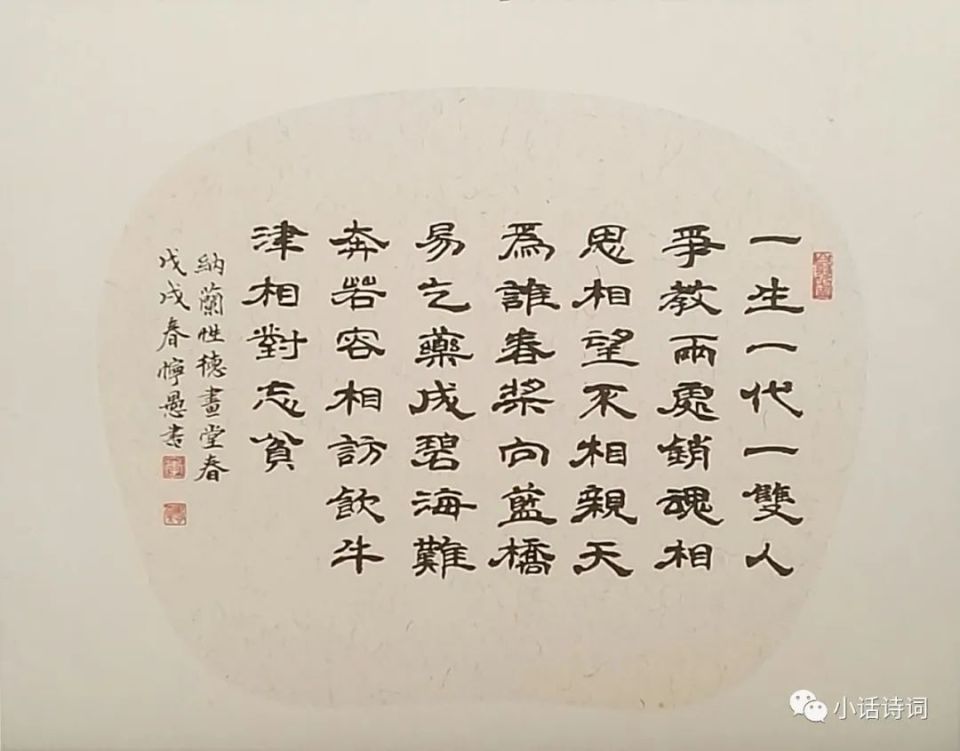 一生一代一雙人
爭教兩處銷魂相
思相望不相親天
為誰春槳向藍橋
易乞藥成碧海難
奔若容相訪飲牛
津相對忘貧
納蘭性德畫堂春
戊戌春懧愚書
小话诗词